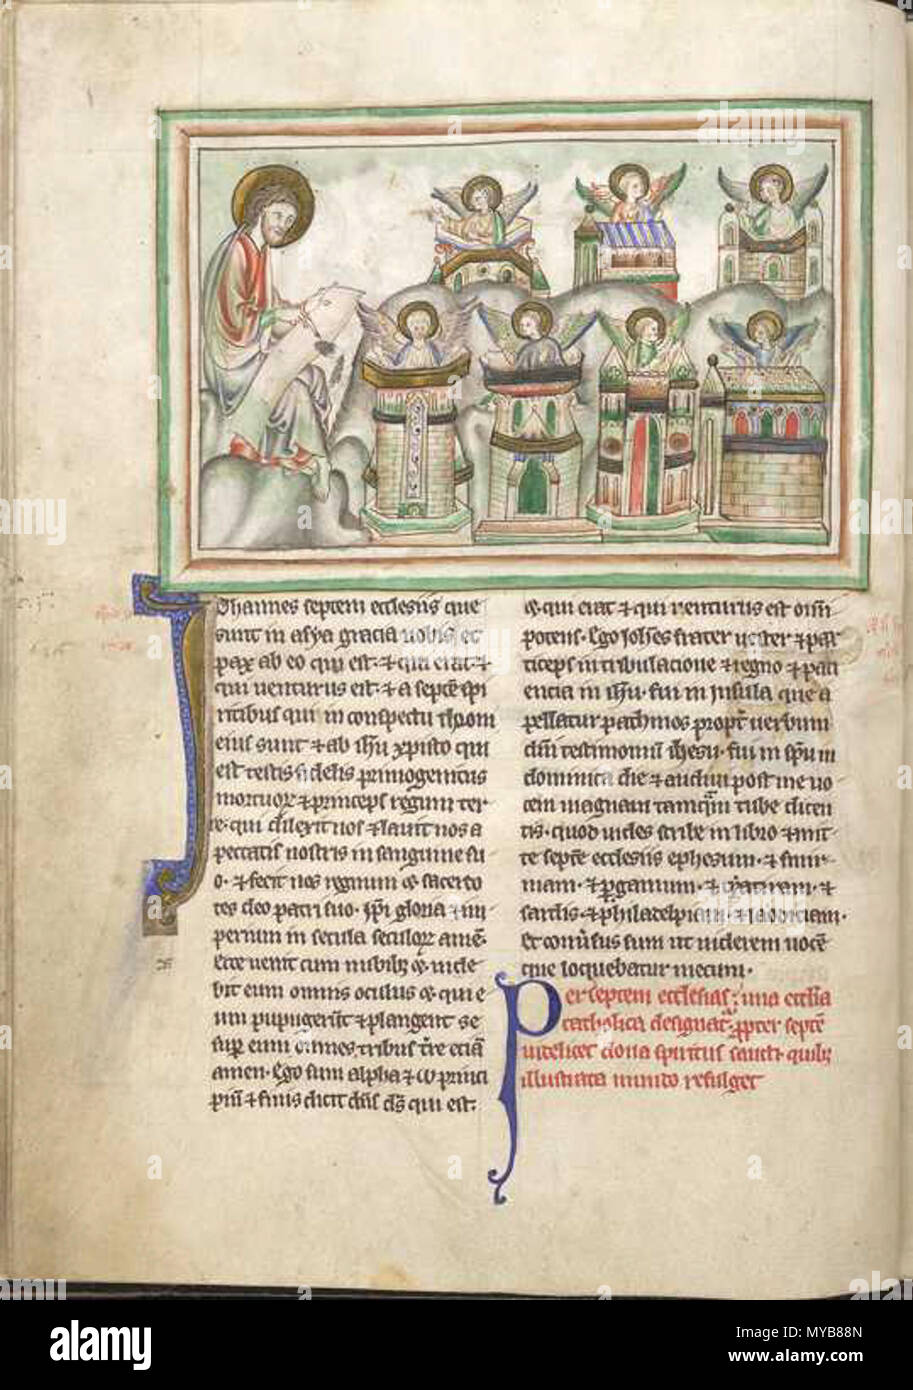 Johannes septem ecclesiis que
sunt in asya gracia uobis et
pax ab eo qui est ⁊ qui erat ⁊
qui uenturus est ⁊ a septē spi
ritibus qui in conspectu throni
eius sunt ⁊ ab ihu xpisto qui
est testis fidelis primogenitus
mortuoꝝ ⁊ princeps regum ter
re qui dilexit nos ⁊ lauit nos a
peccatis nostris in sanguine su
o ⁊ fecit nos regnum
tes deo patri suo ipi gloria ⁊ im
perium in secula seculoꝝ amē
Ecce uenit cum nubibꝫ uide
bit eum omnis oculus qui e
um pupugerūt ⁊ plangent se
sup eum omnes tribus tre eciā
amen Ego sum alpha ⁊ ω princi
piū ⁊ finis dicit dn̄s ds̄ qui est
qui erat ⁊ qui uenturus est om̄i
potens Ego iohēs frater uester ⁊ par
ticeps in tribulacione ⁊ regno ⁊ pati
encia in ihu fui in insula que a
pellatur pathmos propt uerbum
dn̄i testimoniū ihesu fui in spū in
dominica die ⁊ audiui post me uo
cem magnam tamqm tube dicen
tis quod uides scribe in libro ⁊ mit
te septē ecclesiis ephesum ⁊ smir
nam ⁊ pgamum ⁊ tyatiram ⁊
sardis ⁊ philadelphiam ⁊ laodiciam
Et conūsus sum ut uiderem uocē
que loquebatur mecum
Per septem ecclesias una ecclia
catholica designat ppter septē
uidelicet dona spiritus sancti quibꝫ
illustrata mundo refulget
alamy
Image ID: MYB88N
www.alamy.com